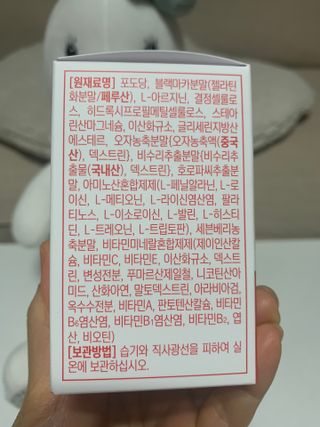 [원재료명] 포도당, 블랙마카분말(젤라틴
화분말/페루산), L-아르지닌, 결정셀룰로
스, 히드록시프로필메틸셀룰로스, 스테아
린산마그네슘, 이산화규소, 글리세린지방산
에스테르, 오자농축분말(오자농축액(중국
산), 덱스트린), 비수리추출분말(비수리추
출물(국내산), 덱스트린), 호로파씨추출분
말, 아미노산혼합제제(L-페닐알라닌, L-로
이신, L-메티오닌, L-라이신염산염, 팔라
티노스, L-이소로이신, L-발린, L-히스티
딘, L-트레오닌, L-트립토판), 세븐베리농
축분말, 비타민미네랄혼합제제(제이인산칼
슘, 비타민C, 비타민E, 이산화규소, 덱스트
린, 변성전분, 푸마르산제일철, 니코틴산아
미드, 산화아연, 말토덱스트린, 아라비아검,
옥수수전분, 비타민A, 판토텐산칼슘, 비타민
B₆염산염, 비타민B₁염산염, 비타민B₂, 엽
산, 비오틴)
[보관방법] 습기와 직사광선을 피하여 실
온에 보관하십시오.